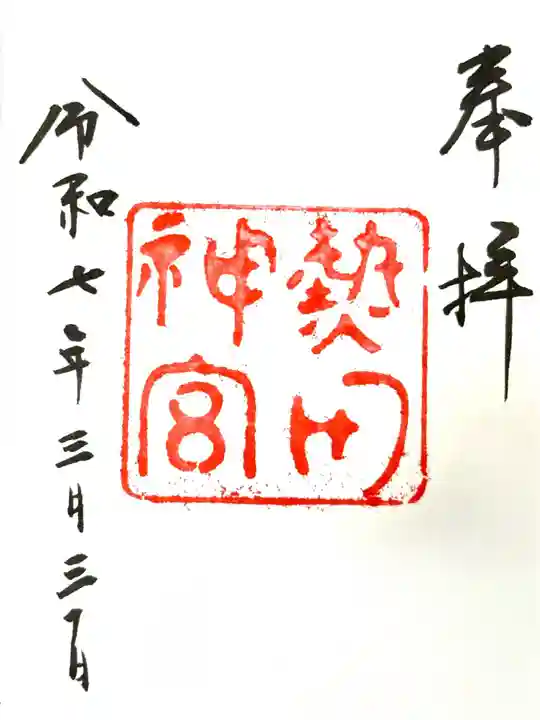 奉拝
熱田
神宮
令和七年三月三日